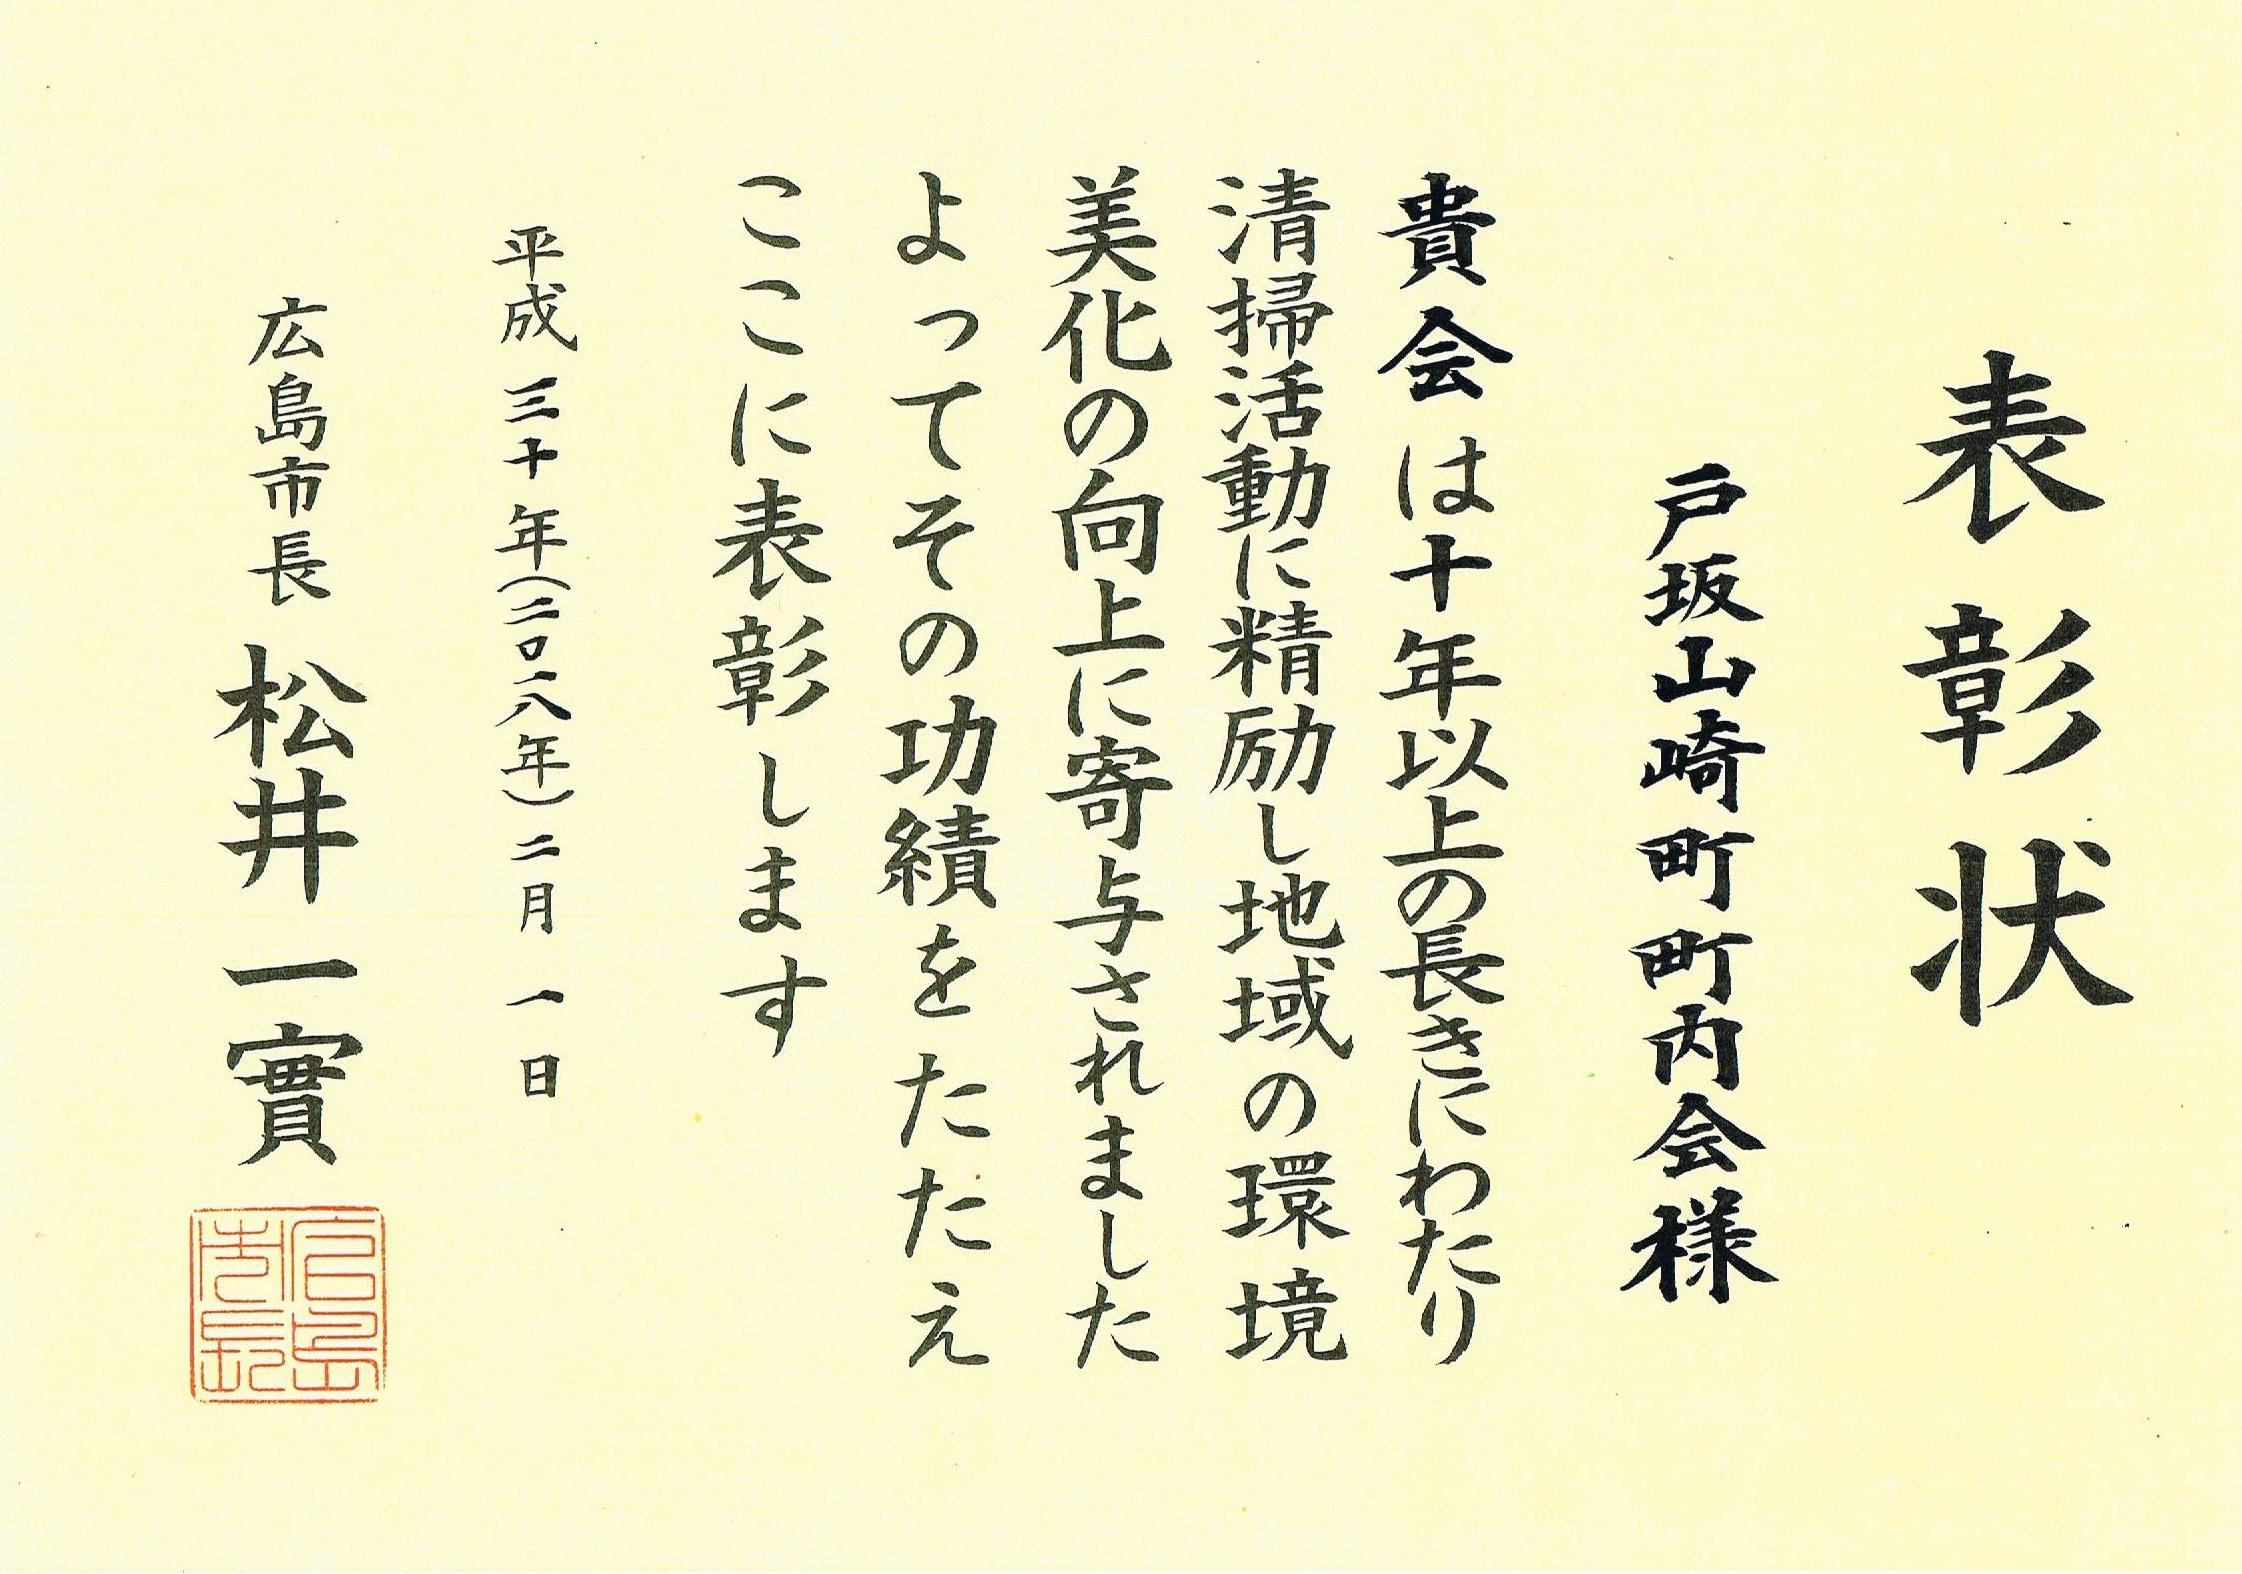 表彰状
戸坂山崎町町内会様
貴会は十年以上の長きにわたり
清掃活動に精励し地域の環境
美化の向上に寄与されました
よってその功績をたたえ
ここに表彰します
平成三十年(二〇一八年)二月一日
広島市長 松井一實
広島
市長